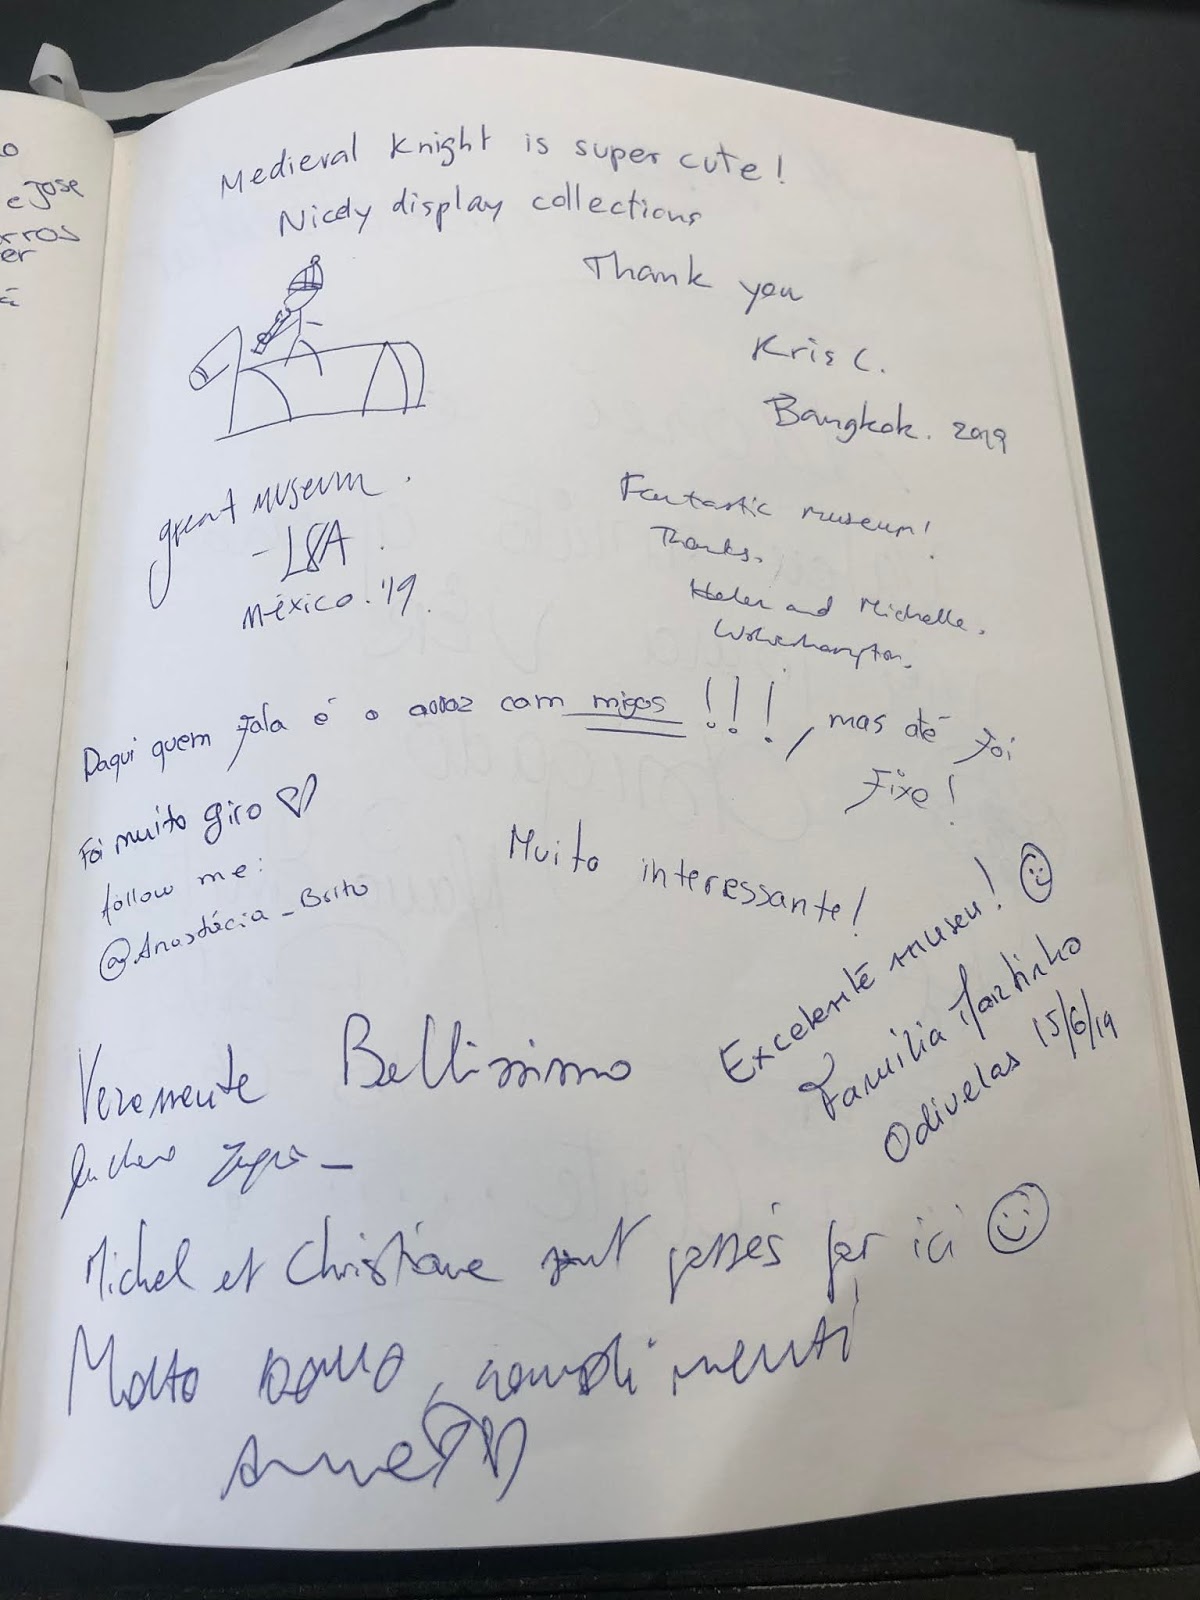 o
e Jose
rros
er
Medieval Knight is super cute!
Nicely display collections
Thank you
Kris C.
Bangkok. 2019
great museum.
- LSA.
México. '19.
Fantastic museum!
Thanks.
Helen and Michelle.
Wolverhampton.
Daqui quem fala é o arroz com migos!!!, mas até foi
Fixe!
Foi muito giro ♡
follow me:
@Anastácia_Brito
Muito interessante!
Excelente museu! ☺
Família Martinho
Odivelas 15/6/19
Veramente Bellissimo
Michel et Christiane sont passés par ici ☺
Molto bello, complimenti
Anne ♡